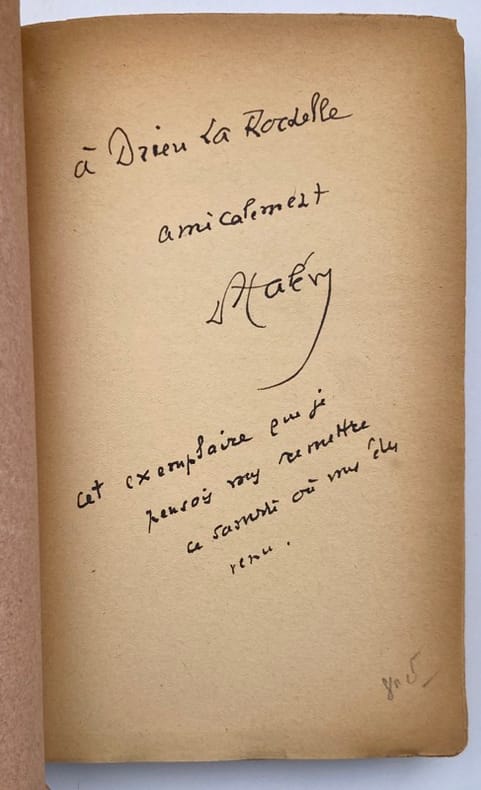 à Drieu La Rochelle
amicalement
cet exemplaire que je
pensais vous remettre
ce samedi où vous êtes
venu.